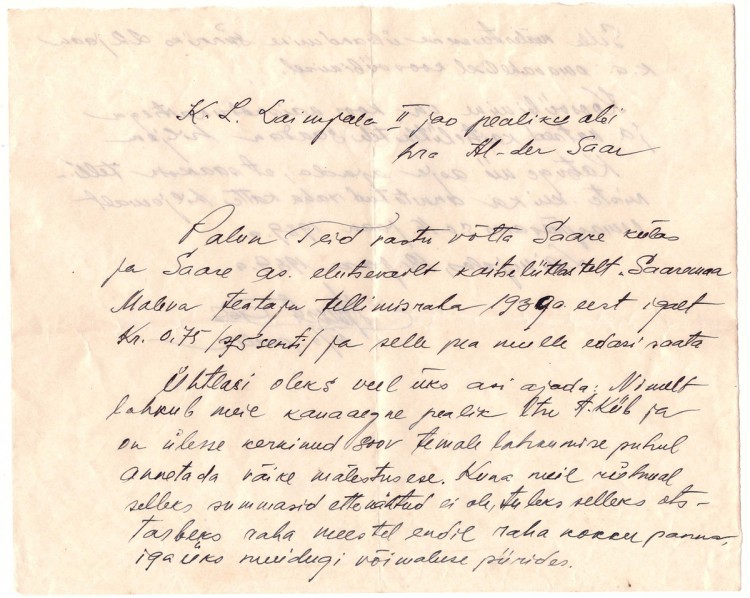 K. L. Laimjala II jao pealiku abi
hra Al-der Saar
Palun Teid vastu võtta Saare külas
ja Saare as. elutsevailt kaitseliitlastelt „Saaremaa
Maleva Teataja tellimisraha 1939a. eest igalt
Kr. 0.75 /75 senti/ ja selle pea meelle edasi saata
Ühtlasi oleks veel üks asi ajada: Nimelt
lahkub meil kauaaegne pealik hra A. Kiib ja
on ülesse kerkinud soov temale lahkumise puhul
annetada väike mälestusese. Kuna meil niisuguseid
selleks summasid ettenähtud ei ole, tuleks selleks ots-
tarbeks raha meestel endil raha kokku panna,
igaüks muidugi võimaluse piirides.